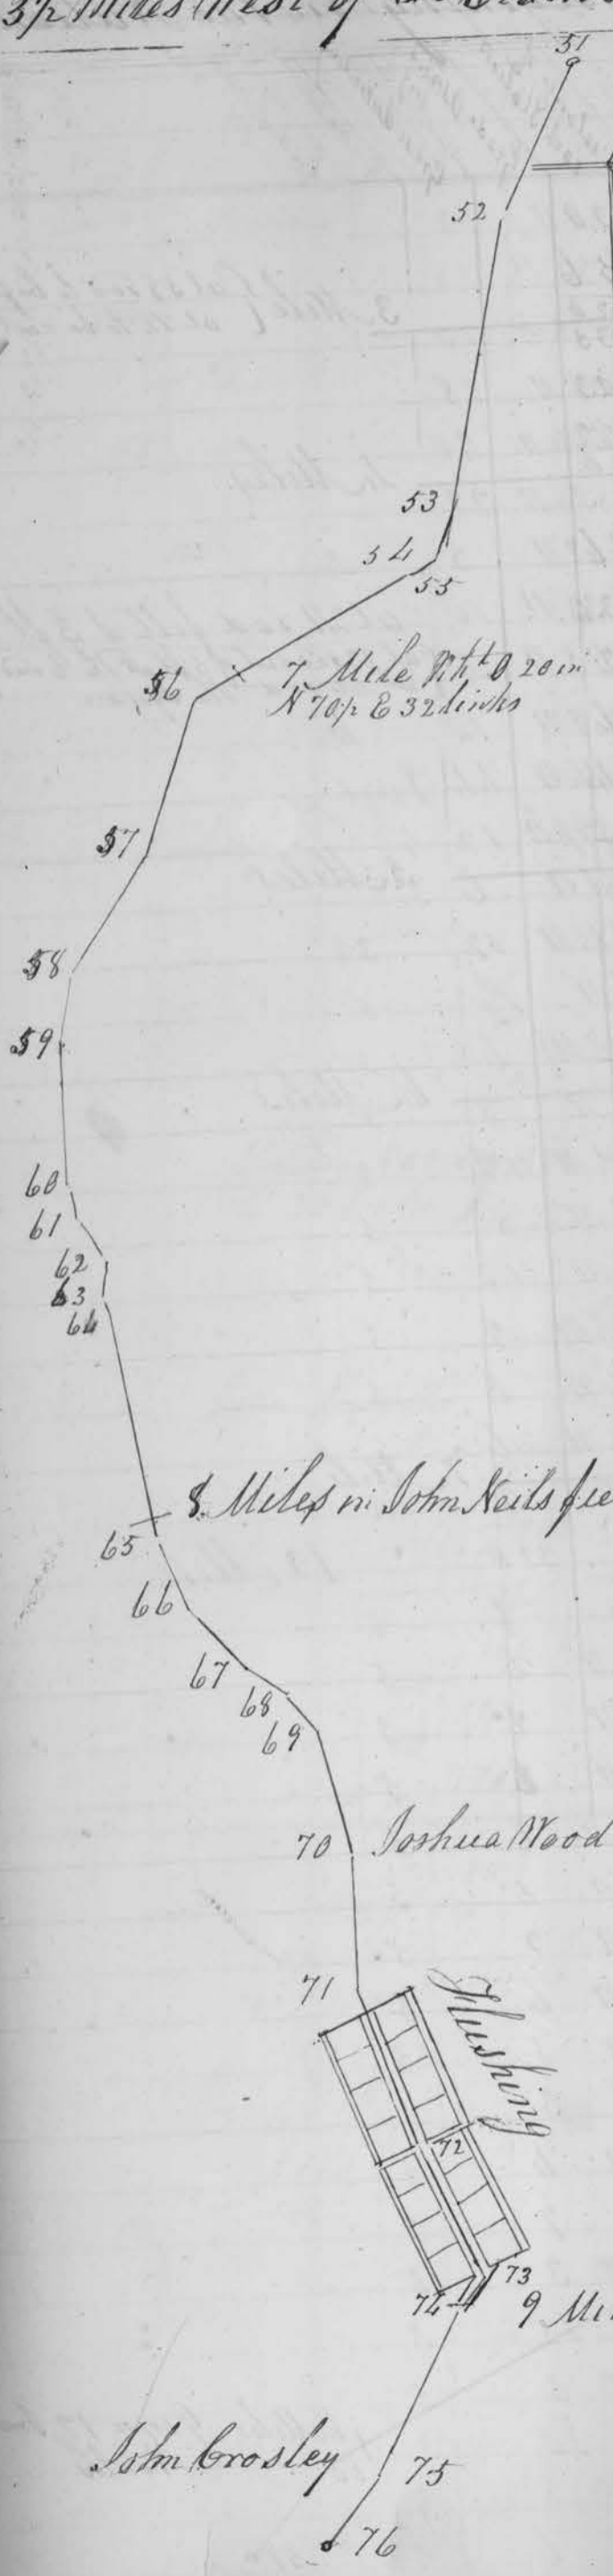 3½ Miles West of
51
52
53
54
55
7 Mile Wht O 20 in
N 70½ E 32 links
56
57
58
59
60
61
62
63
64
8 Miles in John Neils fie
65
66
67
68
69
70 Joshua Wood
71
Flushing
72
73
74
9 Mi
John Crosley
75
76